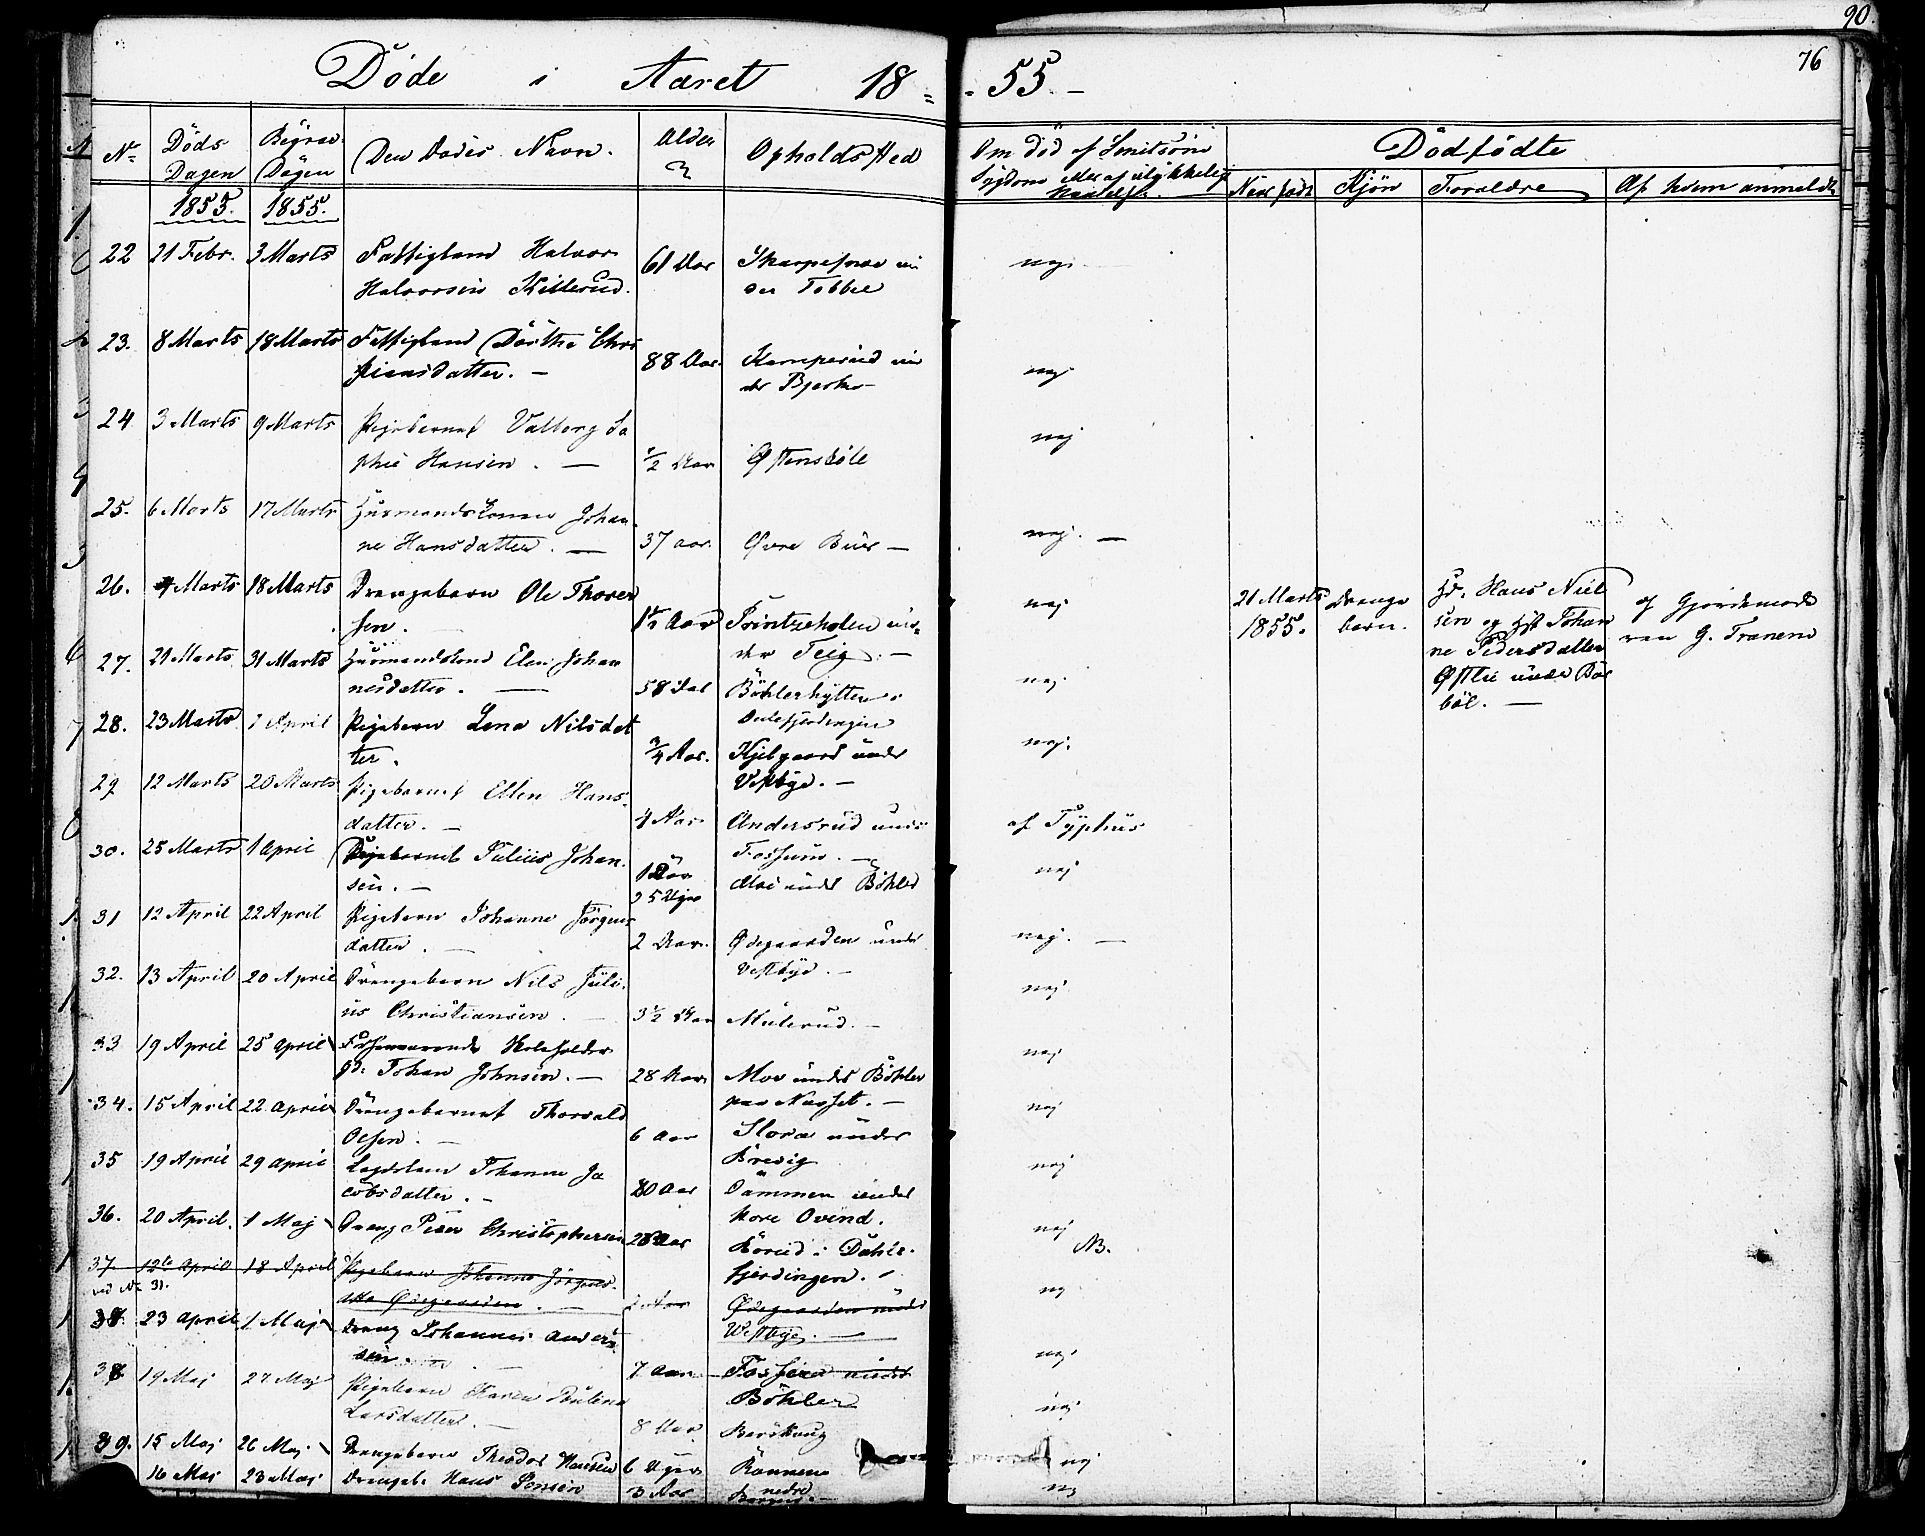 90
76
Døde i Aaret 18 = = 55. -
No
Døds
Dagen
Begrav.
Dagen
Den Dødes Navn.
Alder
Opholdssted
Om død af Smitsom
Sygdom eller af ulykkelig
Hændelse. -
Dødfødte
Naar født
Kjøn
Forældre
Af hvem anmeldt
1855. 1855.
22 21 Febr. 3 Marts Fattiglem Halvor
Halvorsen Killerud. 61 Aar
under Tobbel
nej
23. 8 Marts 18 Marts Fattiglem Dorthe Chri
stiansdatter. - 88 Aar. Kamperud un
der Bjerke -
nej
24 3 Marts 9 Marts Pigebarnet Valborg So
phie Hansen. - 1/2 Aar Østensbøle
nej
25. 6 Marts 17 Marts Huusmandskonen Johan
ne Hansdatter. - 37 aar. Øvre Buer -
nej. -
26. 4 Marts 18 Marts Drengebarn Ole Thorer
sen. 1 1/2 Aar Printzeholen un
der Teig. -
nej
21 Marts
1855.
Drenge
barn.
Hans Niel
sen og Johan
ne Pedersdatter
Østlie under Bøe
bøl. -
af Gjordemode
ren G. Tranem
27. 21 Marts 31 Marts Huusmandskone Elen Johan
nesdatter. - 58 Aar Böhlerhytten i
nej.
28. 23 Marts 1 April Pigebarn Lena Nilsdat
ter. 3/4 Aar. Kjelgaard under
Vestbye. -
nej.
29 12 Marts 20 Marts Pigebarnet Ellen Hans
datter. - 4 Aar Andersrud under
Fossum. -
af Typhus
30. 25 Marts 1 April Julius Johan
sen. - 1 Aar
25 Uger Moe under Böhler
nej
31 12 April 22 April Pigebarn Johanne Jörgens
datter. - 2 Aar. Ødegaarden under
Vestbye. -
nej. -
32. 13 April 20 April Drengebarn Nils Juli
us Christiansen. 3 1/2 Aar Mulerud. -
nej
33 19 April 25 April
Johan Johnsen. - 28 Aar Moe under Böhler
paa Næsset. -
nej
34. 15 April 22 April Drengebarnet Thorvald
Olsen. - 6 Aar Slora under
Brevig
nej
35 19 April 29 April Johanne Ja
cobsdatter. - 80 Aar Dammen under
Øvind.
nej
36. 20 April. 1 Maj Dreng Peter Christophersen Börud i Dahle
fjerdingen.
nej
NB.
37. 12te April 18 April Pigebarn Johanne Jörgens
ved No 31. datter Ødegaarden. - 2 Aar Ødegaarden under
Vestbye. -
nej
37. 23 April 1 Maj Dreng Johannes Anders
sen. 7 Aar under
Böhler
nej
38 19 Maj 27 Maj Pigebarn Karen Paulina
Larsdatter. - 8 Aar
nej
39. 15 Maj 26 Maj Drengebarn Theodor Hansen 6 Uger Rönnen
nej
16 Maj 23 Maj Drengeb. Hans Jensen 3 Aar nedre
nej